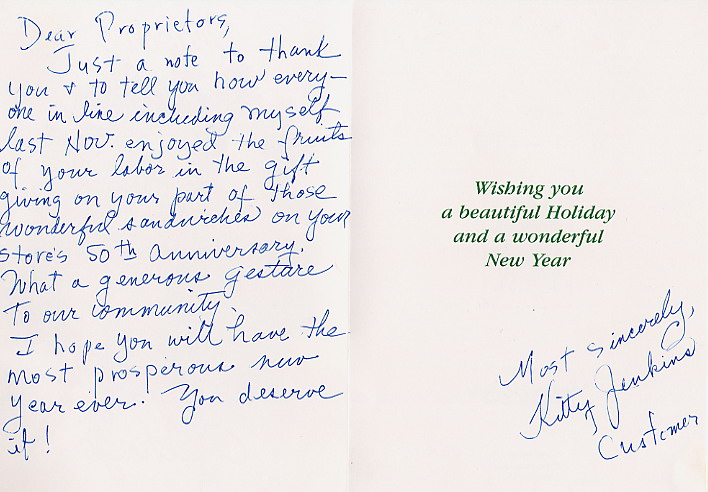 Dear Proprietors,
Just a note to thank
you & to tell you how every-
one in line including myself
last Nov. enjoyed the fruits
of your labor in the gift
giving on your part of those
wonderful sandwiches on your
store's 50th Anniversary.
What a generous gesture
to our community.
I hope you will have the
most prosperous new
year ever. You deserve
it!
Wishing you
a beautiful Holiday
and a wonderful
New Year
Most Sincerely,
Kitty Jenkins
Customer